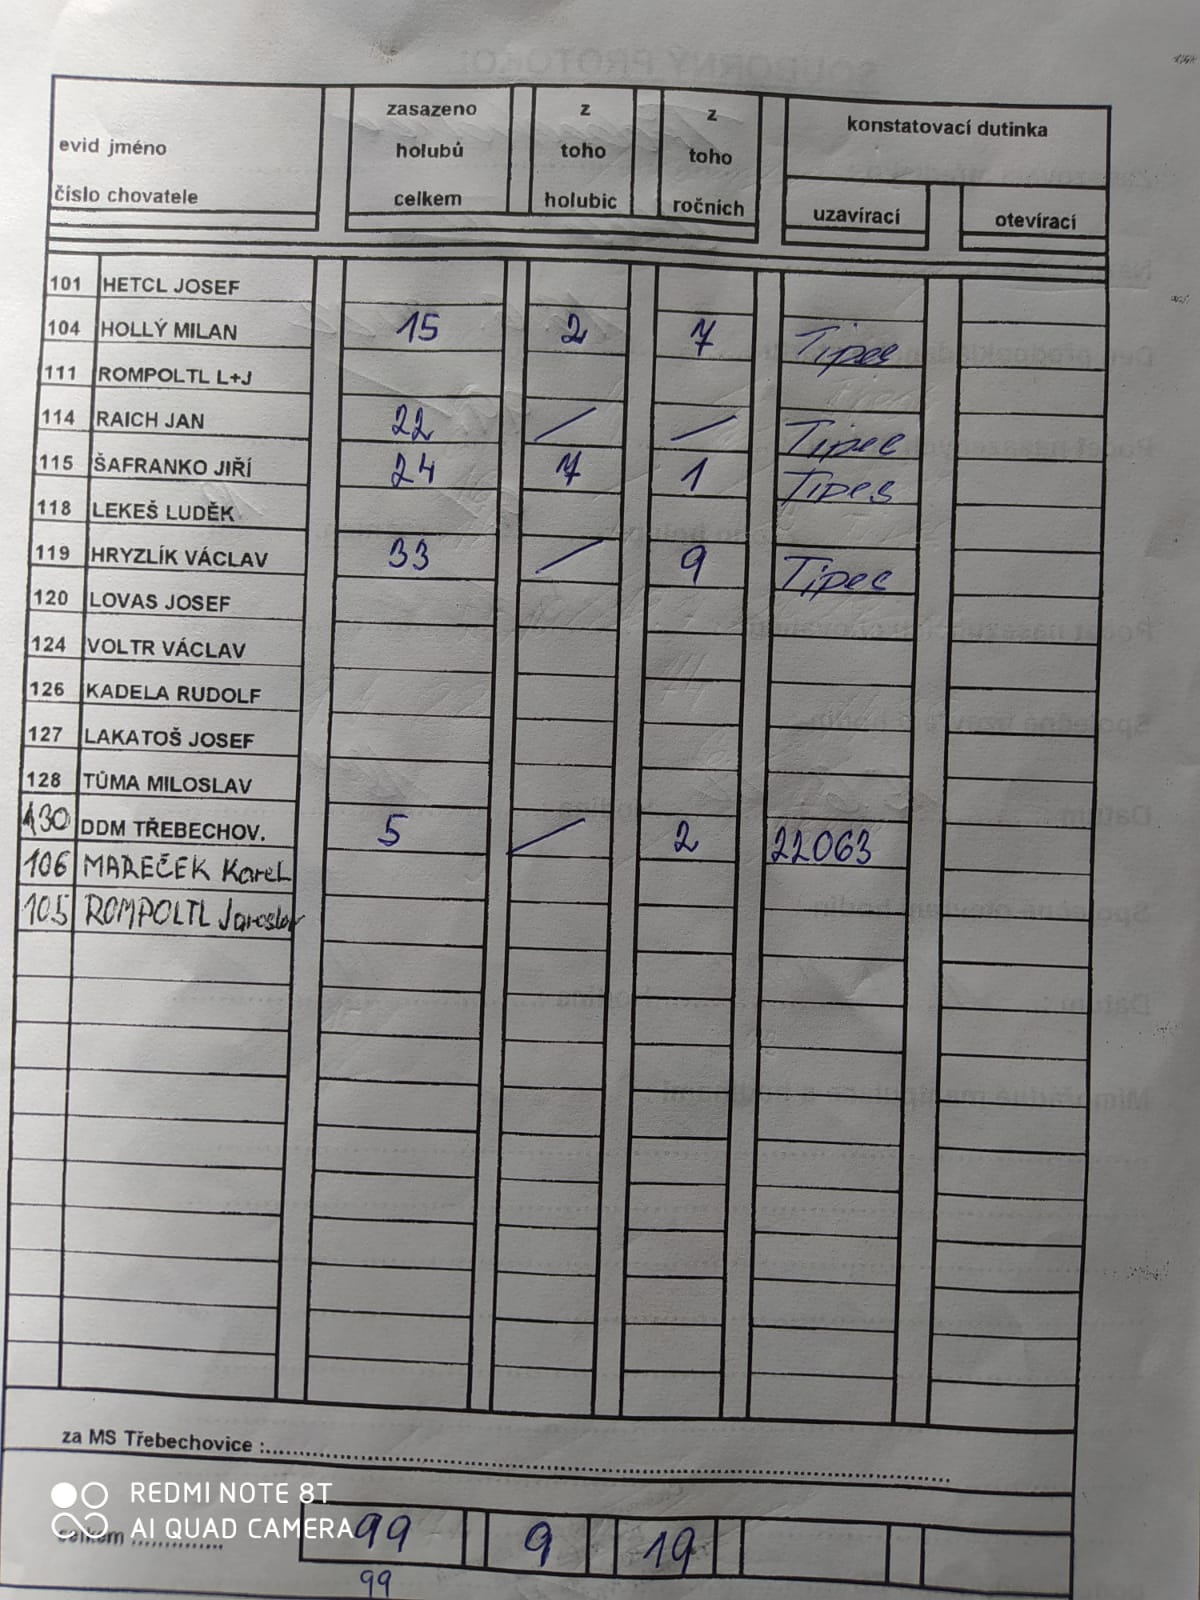 evid jméno
číslo chovatele
zasazeno
holubů
celkem
z
toho
holubic
z
toho
ročních
konstatovací dutinka
uzavírací
otevírací
101 HETCL JOSEF
104 HOLLÝ MILAN 15 2 7 Tipes
111 ROMPOLTL L+J
114 RAICH JAN 22 / / Tipec
115 ŠAFRANKO JIŘÍ 24 7 1 Tipes
118 LEKEŠ LUDĚK
119 HRYZLÍK VÁCLAV 33 / 9 Tipec
120 LOVAS JOSEF
124 VOLTR VÁCLAV
126 KADELA RUDOLF
127 LAKATOŠ JOSEF
128 TŮMA MILOSLAV
130 DDM TŘEBECHOV. 5 / 2 22063
106 MAREČEK Karel
105 ROMPOLTL Jaroslav
za MS Třebechovice :
celkem 99 9 19
99
REDMI NOTE 8T
AI QUAD CAMERA